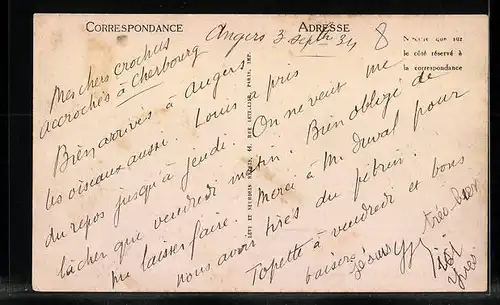 CORRESPONDANCE
ADRESSE
Angers 3 septbre 34
8
N'écrire que sur
le côté réservé à
la correspondance
Mes chers crochus
accrochés à Cherbourg
Bien arrivés à Angers
les oiseaux aussi. Louis a pris
du repos jusqu'à jeudi. On ne veut me
lâcher que vendredi matin. Bien obligé de
me laisser faire. Merci à M. Duval pour
nous avoir tirés du pétrin.
Topette à vendredi et bons
baisers
LÉVY ET NEURDEIN RÉUNIS, 44, RUE LETELLIER, PARIS, IMP.